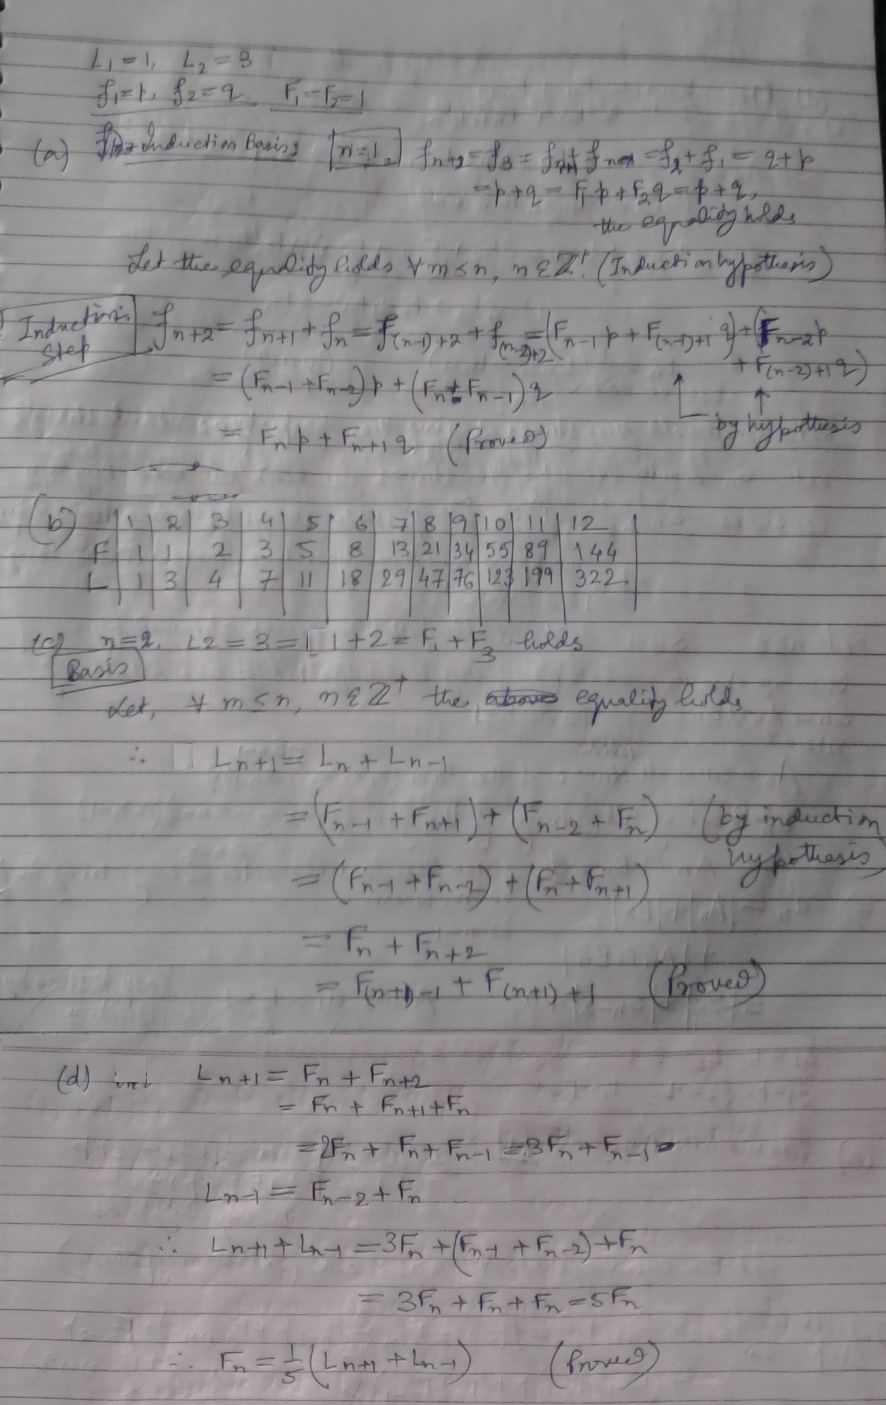 L₁=1, L₂=3
f₁=p, f₂=q, F₁=F₂=1
(a) Induction Basis: n=1. fₙ₊₂=f₃=fₙ₊₁+fₙ=f₂+f₁=q+p
=p+q=F₁p+F₂q=p+q,
the equality holds
Let the equality holds ∀ m<n, n∈ℤ⁺. (Induction hypothesis)
Induction Step fₙ₊₂=fₙ₊₁+fₙ=f₍ₙ₋₁₎₊₂+f₍ₙ₋₂₎₊₂=(Fₙ₋₁p+F₍ₙ₋₁₎₊₁q)+(Fₙ₋₂p
+F₍ₙ₋₂₎₊₁q)
=(Fₙ₋₁+Fₙ₋₂)p+(Fₙ+Fₙ₋₁)q
by hypothesis
=Fₙp+Fₙ₊₁q (Proved)
(b) 1 2 3 4 5 6 7 8 9 10 11 12
F 1 1 2 3 5 8 13 21 34 55 89 144
L 1 3 4 7 11 18 29 47 76 123 199 322
(c) n=2, L2=3=1+2=F₁+F₃ holds
Basis
Let, ∀ m≤n, n∈ℤ⁺ the above equality holds
∴ Lₙ₊₁=Lₙ+Lₙ₋₁
=(Fₙ₋₁+Fₙ₊₁)+(Fₙ₋₂+Fₙ) (by induction
hypothesis)
=(Fₙ₋₁+Fₙ₋₂)+(Fₙ+Fₙ₊₁)
=Fₙ+Fₙ₊₂
=F₍ₙ₊₁₎₋₁+F₍ₙ₊₁₎₊₁ (Proved)
(d) Lₙ₊₁=Fₙ+Fₙ₊₂
=Fₙ+Fₙ₊₁+Fₙ
=2Fₙ+Fₙ+Fₙ₋₁=3Fₙ+Fₙ₋₁
Lₙ₋₁=Fₙ₋₂+Fₙ
∴ Lₙ₊₁+Lₙ₋₁=3Fₙ+(Fₙ₋₁+Fₙ₋₂)+Fₙ
=3Fₙ+Fₙ+Fₙ=5Fₙ
∴ Fₙ=1/5(Lₙ₊₁+Lₙ₋₁) (Proved)